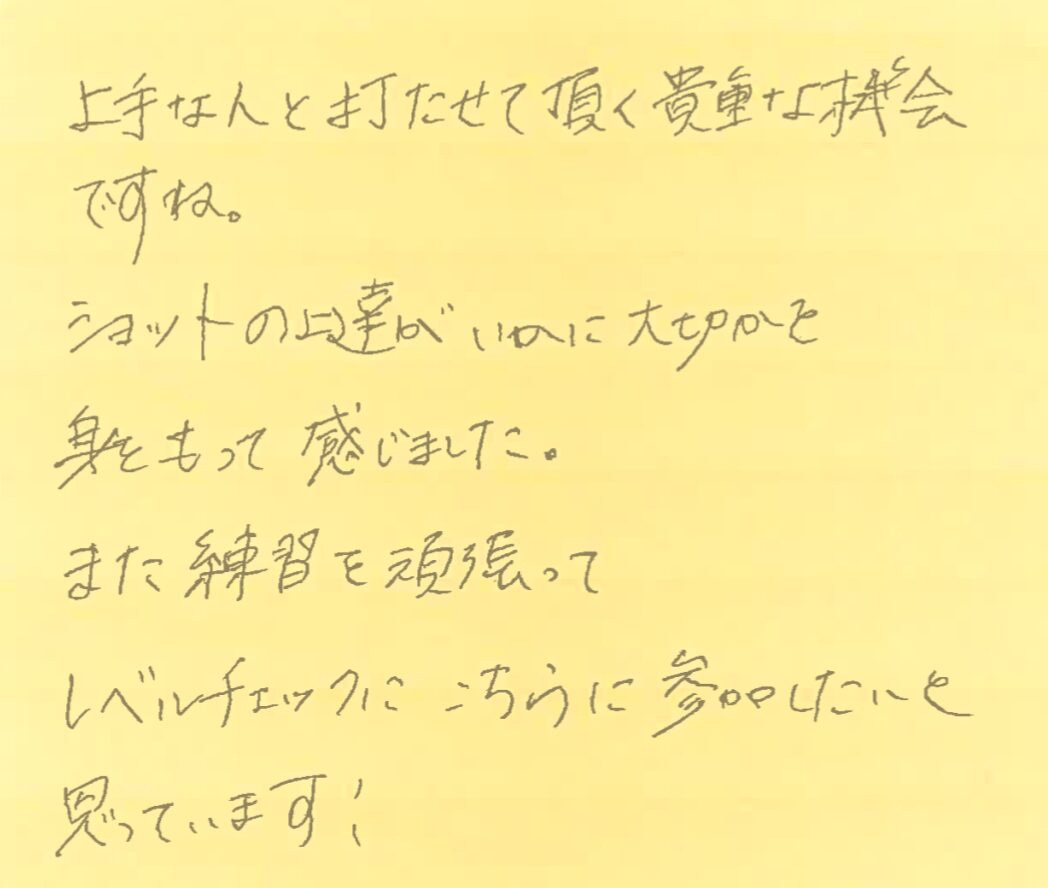 上手な人と打たせて頂く貴重な機会
ですね。
ショットの上達がいかに大切かを
身をもって感じました。
また練習を頑張って
レベルチェックにこちらに参加したいと
思っています!